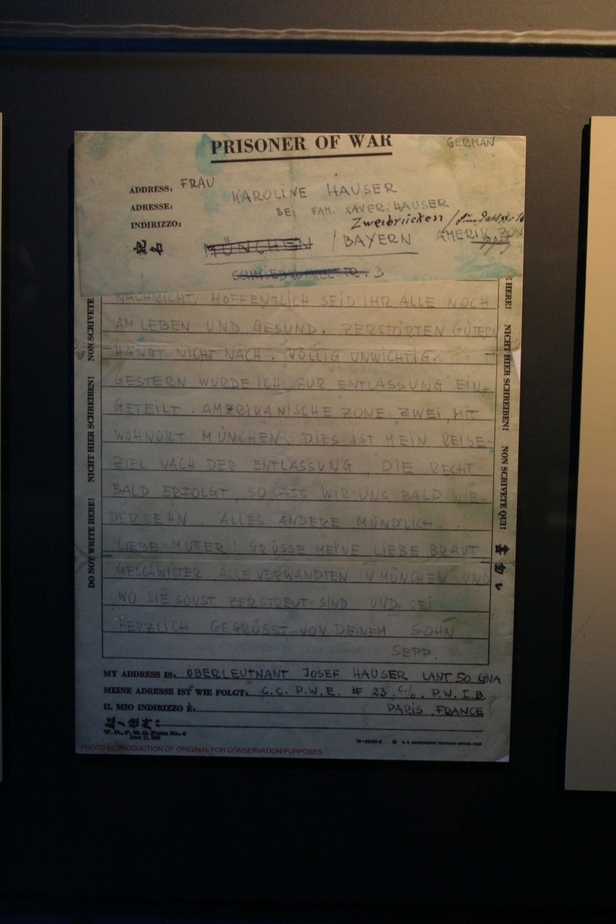 PRISONER OF WAR
GERMAN
ADDRESS: FRAU KAROLINE HAUSER
ADRESSE: BEI FAM. XAVER HAUSER
INDIRIZZO: Zweibrücken /
MÜNCHEN / BAYERN AMERIK. ZON
3
NACHRICHT. HOFFENTLICH SEID IHR ALLE NOCH
AM LEBEN UND GESUND. ZERSTÖRTEN GÜTERN
HÄNGT NICHT NACH. VÖLLIG UNWICHTIG.
GESTERN WURDE ICH ZUR ENTLASSUNG EIN-
GETEILT. AMERIKANISCHE ZONE ZWEI, MIT
WOHNORT MÜNCHEN. DIES IST MEIN REISE-
ZIEL NACH DER ENTLASSUNG, DIE RECHT
BALD ERFOLGT, SODASS WIR UNS BALD WIE-
DERSEHN. ALLES ANDERE MÜNDLICH.
LIEBE MUTTER! GRÜSSE MEINE LIEBE BRAUT
GESCHWISTER ALLE VERWANDTEN IN MÜNCHEN UND
WO SIE SONST ZERSTREUT SIND UND SEI
HERZLICH GEGRÜSST VON DEINEM SOHN
SEPP.
DO NOT WRITE HERE! NICHT HIER SCHREIBEN! NON SCRIVETE
HERE! NICHT HIER SCHREIBEN! NON SCRIVETE QUI!
MY ADDRESS IS: OBERLEUTNANT JOSEF HAUSER
MEINE ADRESSE IST WIE FOLGT: C.C. P.W.E. # 23, c/o. P.W.I.B
IL MIO INDIRIZZO È: PARIS, FRANCE
W. D., P. M. G. Form No. 4
PHOTO REPRODUCTION OF ORIGINAL FOR CONSERVATION PURPOSES